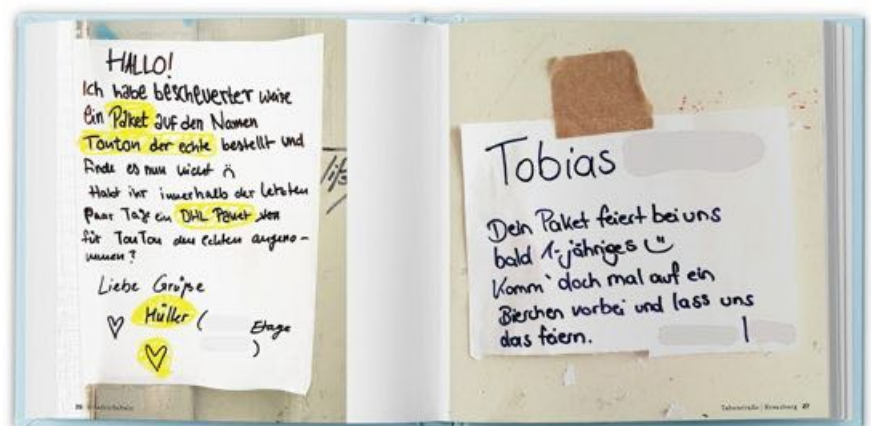 HALLO!
Ich habe bescheuerter weise
ein Paket auf den Namen
TonTon der echte bestellt und
finde es nun nicht
Habt ihr innerhalb der letzten
paar Tage ein DHL Paket
für TonTon den echten angeno-
mmen?
Liebe Grüße
Müller ( Etage
)
Tobias
Dein Paket feiert bei uns
bald 1-jähriges
Komm' doch mal auf ein
Bierchen vorbei und lass uns
das feiern.
26
Kreuzberg 27